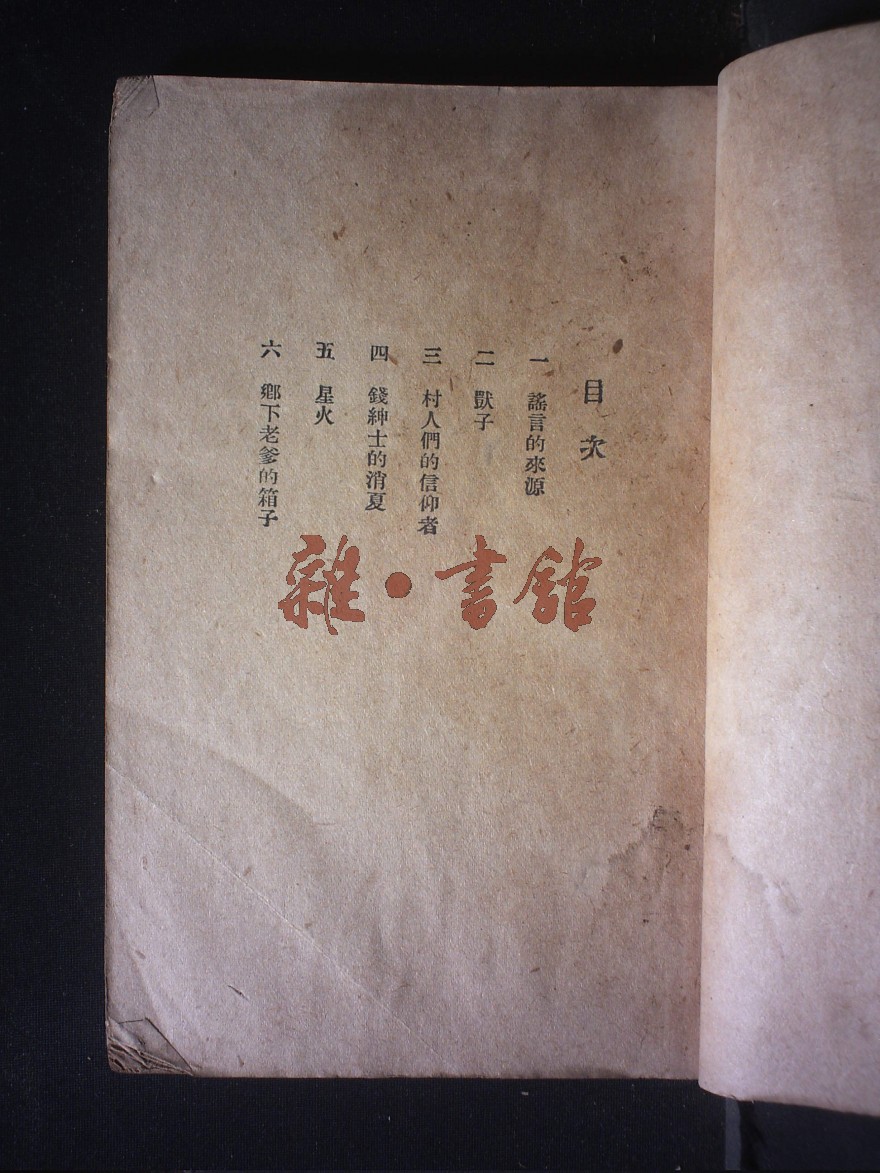 目次
一 謠言的來源
二 獃子
三 村人們的信仰者
四 錢紳士的消夏
五 星火
六 鄉下老爹的箱子
雜·書館